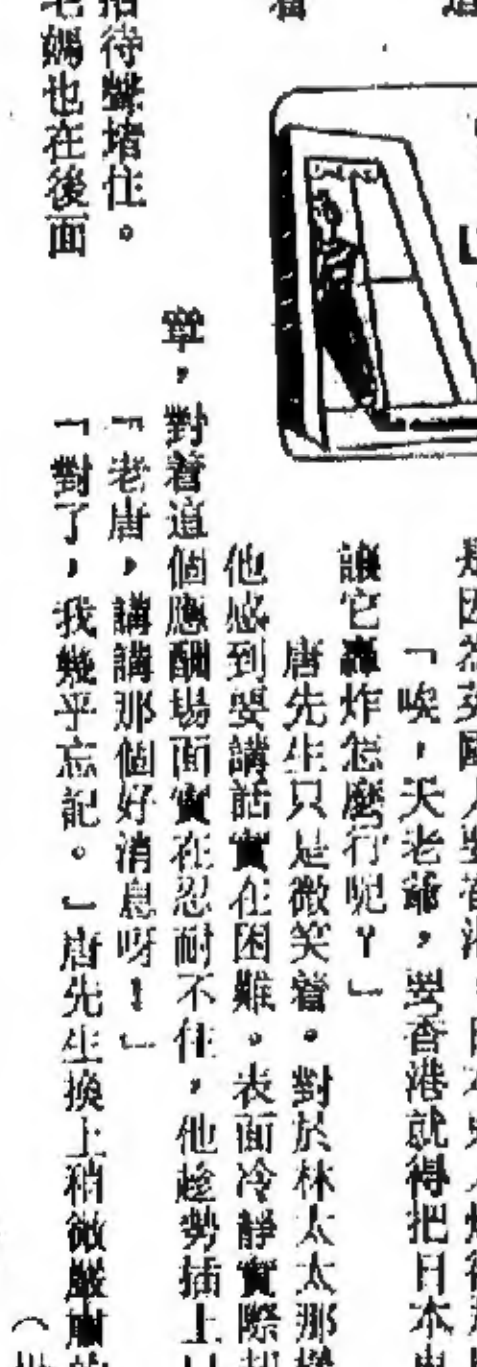 「唉，天老爺，要香港就得把日本
讓它轟炸怎麼行呢？」
唐先生只是微笑着。對於林太太那
他感到要講話實在困難。表面冷靜實際
，對着這個應酬場面實在忍耐不住，他趁勢插上
「老唐，講講那個好消息呀！」
「對了，我幾乎忘記。」唐先生換上稍微嚴肅的
着
招待聲堵住。
老媽也在後面